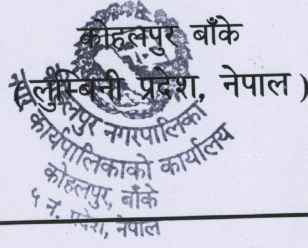 कोहलपुर बाँके
(लुम्बिनी प्रदेश, नेपाल)
कोहलपुर नगरपालिका
कार्यपालिकाको कार्यालय
कोहलपुर, बाँके
५ नं. प्रदेश, नेपाल